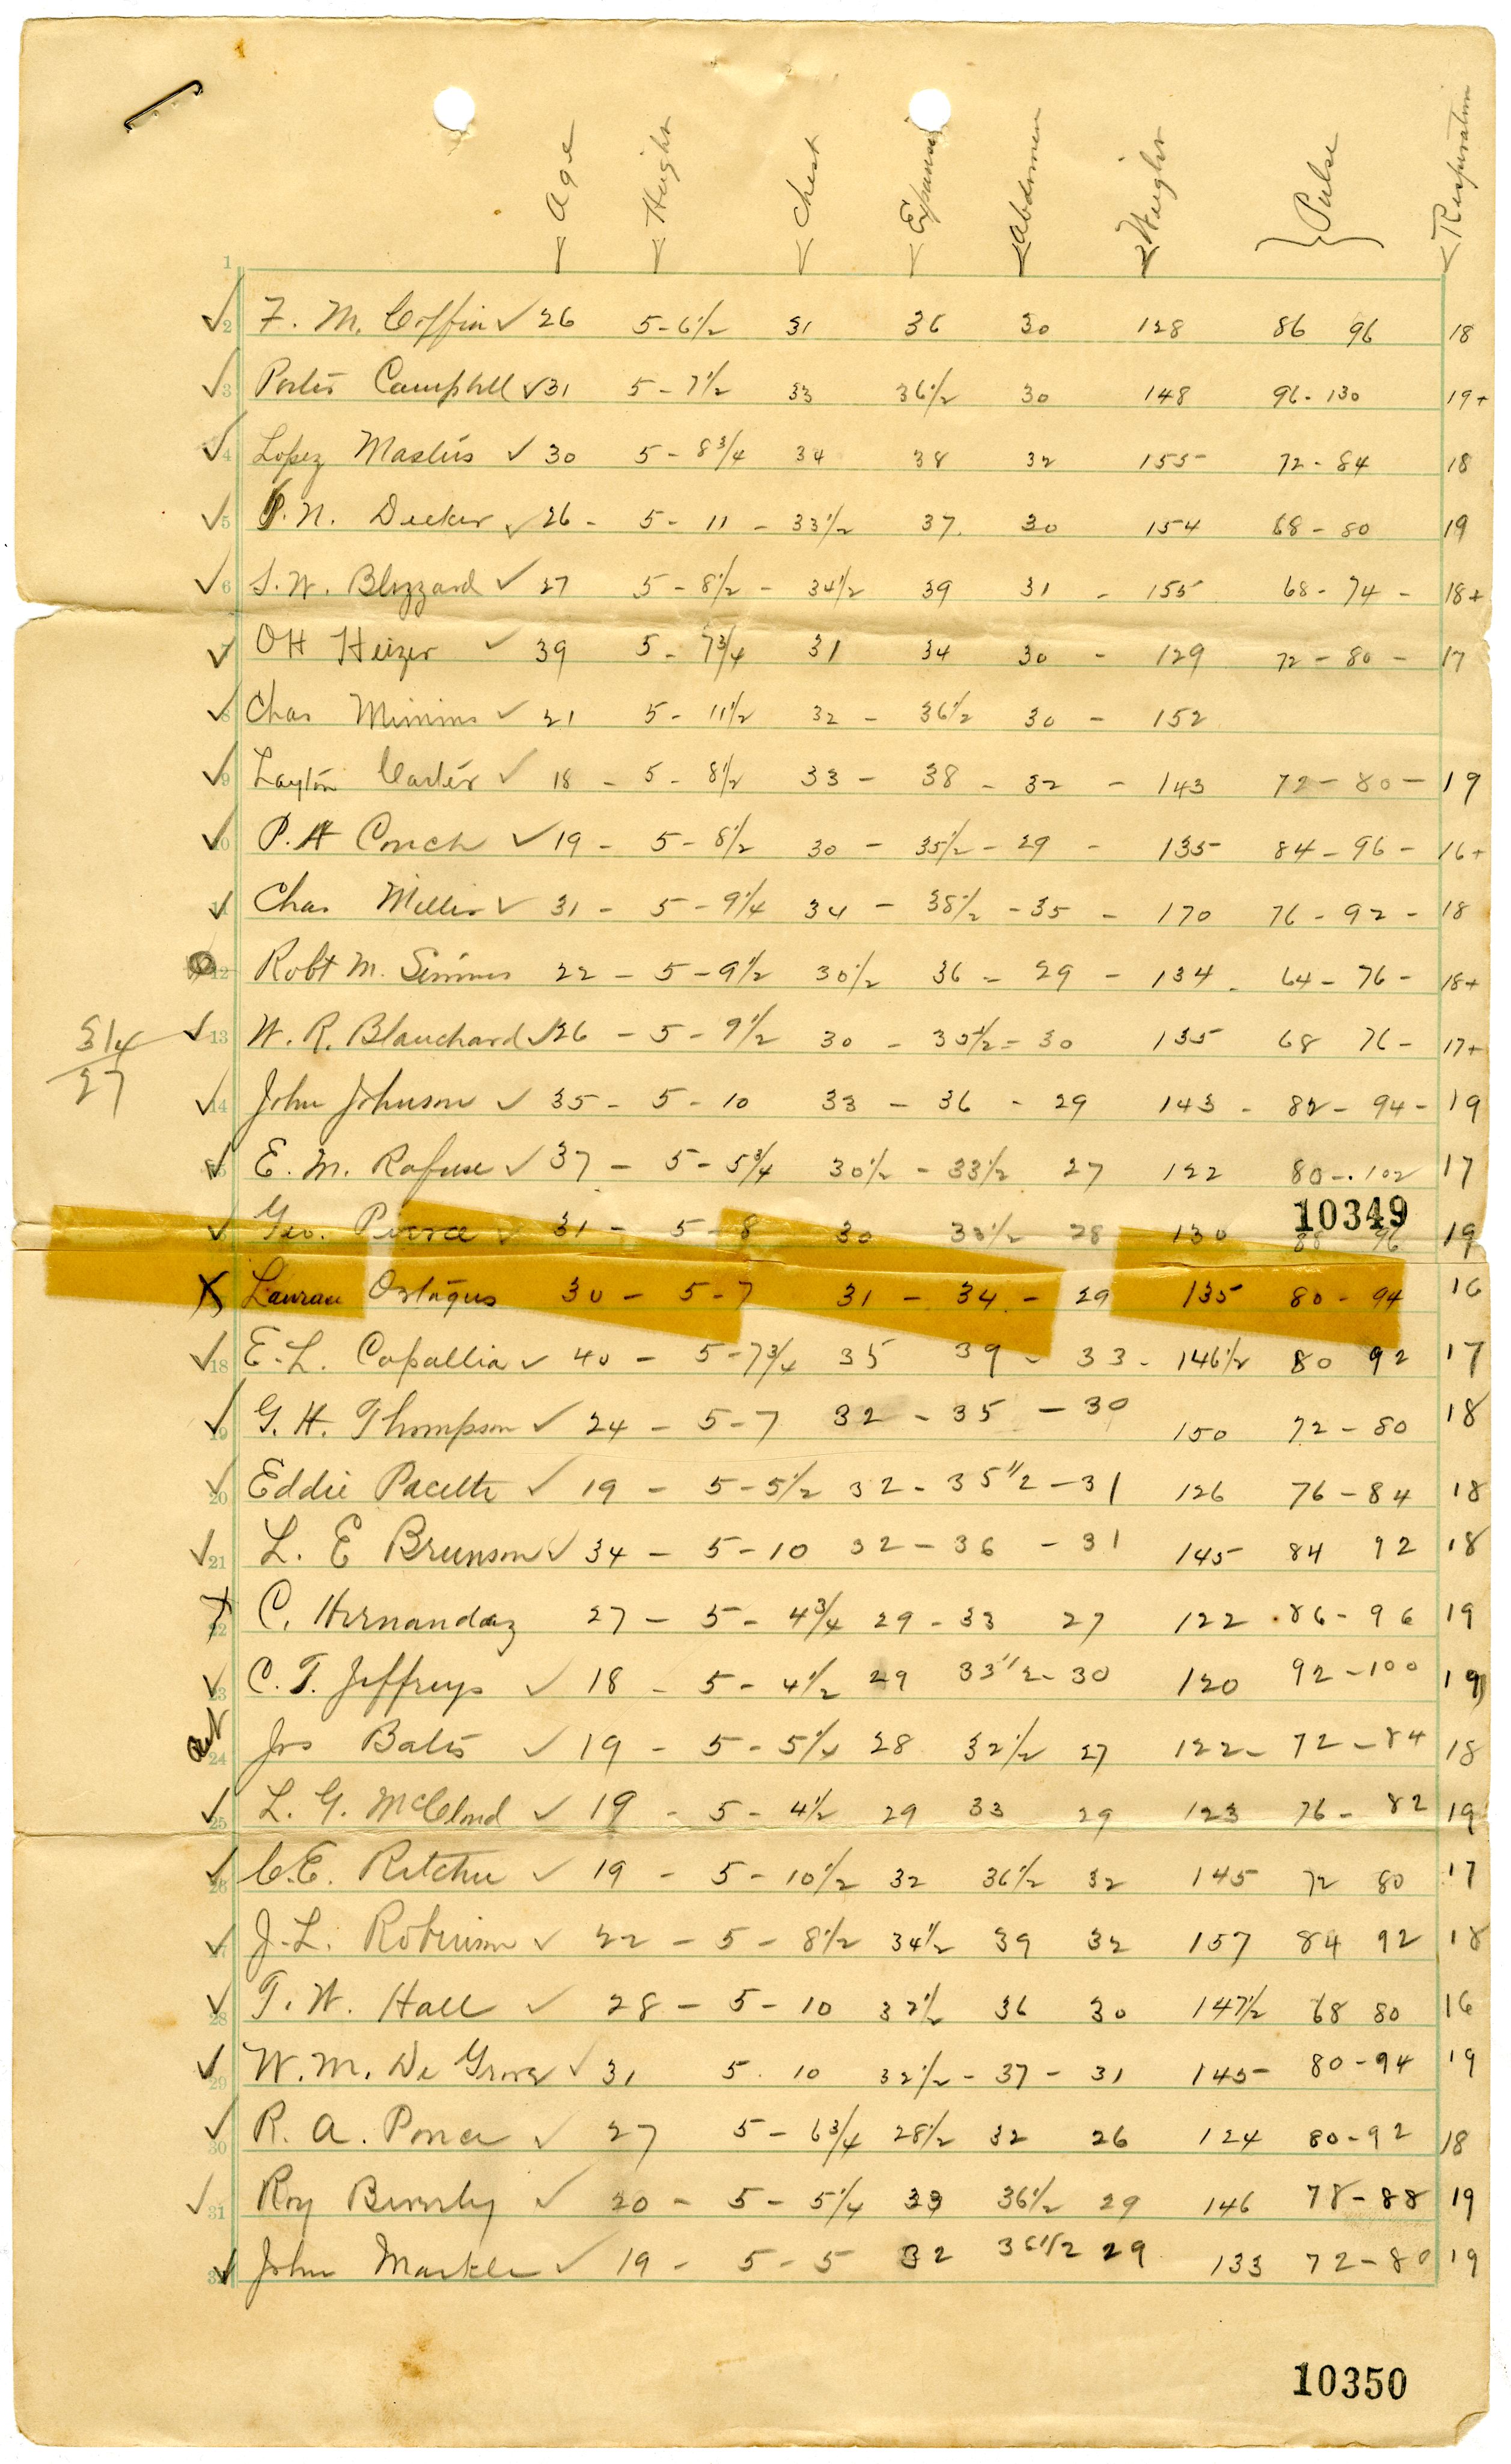 Age Height Chest Expansion Abdomen Weight Pulse Respiration
1
✓ 2 F. M. Coffin ✓ 26 5-6 1/2 31 36 30 128 86 96 18
✓ 3 Porter Campbell ✓ 31 5-7 1/2 33 36 1/2 30 148 96-130 19+
✓ 4 Lopez Masters ✓ 30 5-8 3/4 34 38 32 155 72-84 18
✓ 5 P. N. Decker ✓ 26 - 5-11 - 33 1/2 37. 30 154 68-80 19
✓ 6 S. W. Blizzard ✓ 27 5-8 1/2 - 34 1/2 39 31 - 155 68-74 - 18+
✓ 7 OH Heizer ✓ 39 5-7 3/4 31 34 30 - 129 72-80 - 17
✓ 8 Chas Mimms ✓ 21 5-11 1/2 32 - 36 1/2 30 - 152
✓ 9 Layton Carter ✓ 18 - 5-8 1/2 33 - 38 - 32 - 143 72-80 - 19
✓ 10 P. H Couch ✓ 19 - 5-8 1/2 30 - 35 1/2 - 29 - 135 84-96 - 16+
✓ 11 Chas Miller ✓ 31 - 5-9 1/4 34 - 38 1/2 - 35 - 170 76-92 - 18
12 Robt M. Simms 22 - 5-9 1/2 30 1/2 36 - 29 - 134 - 64-76 - 18+
314/27 ✓ 13 W. R. Blanchard ✓ 26 - 5-9 1/2 30 - 35 1/2 - 30 135 68 76 - 17+
✓ 14 John Johnson ✓ 35 - 5-10 33 - 36 - 29 143 - 82-94 - 19
✓ 15 E. M. Rafuse ✓ 37 - 5-5 3/4 30 1/2 - 33 1/2 27 122 80-102 17
10349
✓ Geo. Pierce ✓ 31 - 5-8 30 33 1/2 28 130 88 96 19
X Ortagus 30 - 5-7 31 - 34 - 29 135 80-94 16
✓ 18 E. L. Capallia ✓ 40 - 5-7 3/4 35 39 - 33 - 146 1/2 80 92 17
✓ 19 G. H. Thompson ✓ 24 - 5-7 32 - 35 - 30 150 72-80 18
✓ 20 Eddie Pacetti ✓ 19 - 5-5 1/2 32 - 35 1/2 - 31 126 76-84 18
✓ 21 L. E Brunson ✓ 34 - 5-10 32 - 36 - 31 145 84 92 18
X 22 C. Hernandaz 27 - 5-4 3/4 29 - 33 27 122 86-96 19
✓ 23 C. T. Jeffreys ✓ 18 - 5-4 1/2 29 33 1/2 - 30 120 92-100 19
24 Jos Bates ✓ 19 - 5-5 1/4 28 32 1/2 27 122 - 72-84 18
✓ 25 L. G. McCloud ✓ 19 - 5-4 1/2 29 33 29 123 76-82 19
✓ 26 C. E. Ritchie ✓ 19 - 5-10 1/2 32 36 1/2 32 145 72 80 17
✓ 27 J. L. Robinson ✓ 22 - 5-8 1/2 34 1/2 39 32 157 84 92 18
✓ 28 T. W. Hall ✓ 28 - 5-10 32 1/2 36 30 147 1/2 68 80 16
✓ 29 W. M. De Grove ✓ 31 5 10 32 1/2 - 37 - 31 145 80-94 19
✓ 30 R. A. Ponce ✓ 27 5-6 3/4 28 1/2 32 26 124 80-92 18
✓ 31 Roy Beverly ✓ 20 - 5-5 1/4 33 36 1/2 29 146 78-88 19
✓ 32 John Markle ✓ 19 - 5-5 32 36 1/2 29 133 72-80 19
10350